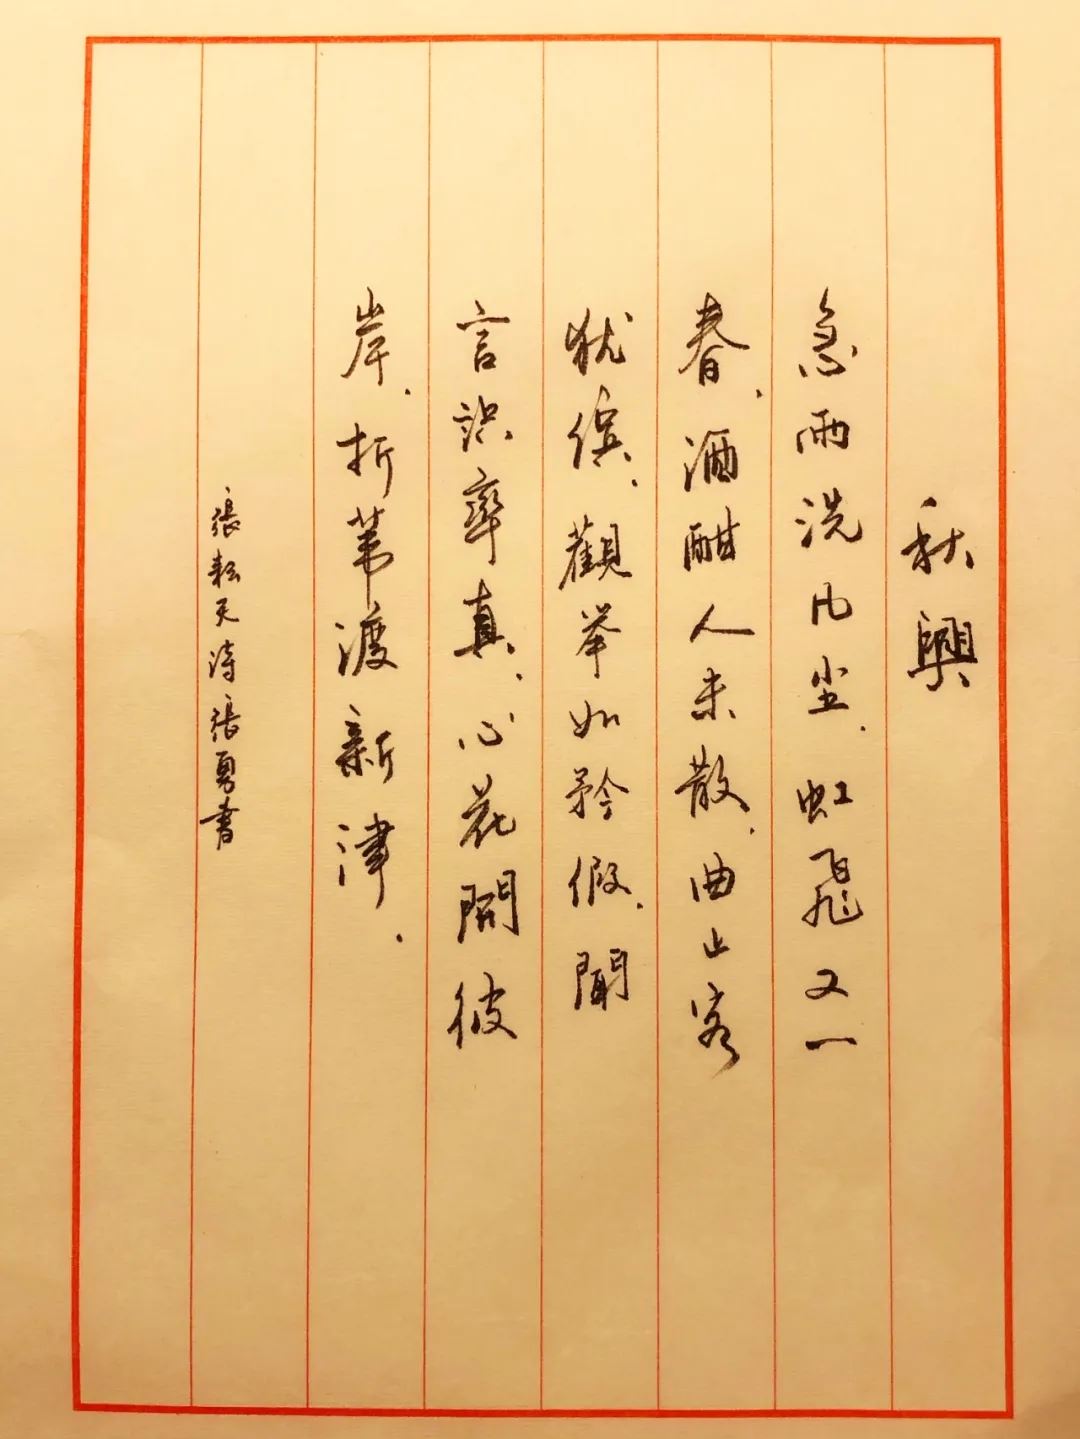 秋興
急雨洗凡尘.虹飛又一
春.酒酣人未散.曲止客
犹缤.觀举如矜假.聞
言识率真.心花問彼
岸.折苇渡新津.
張耘天诗張勇書